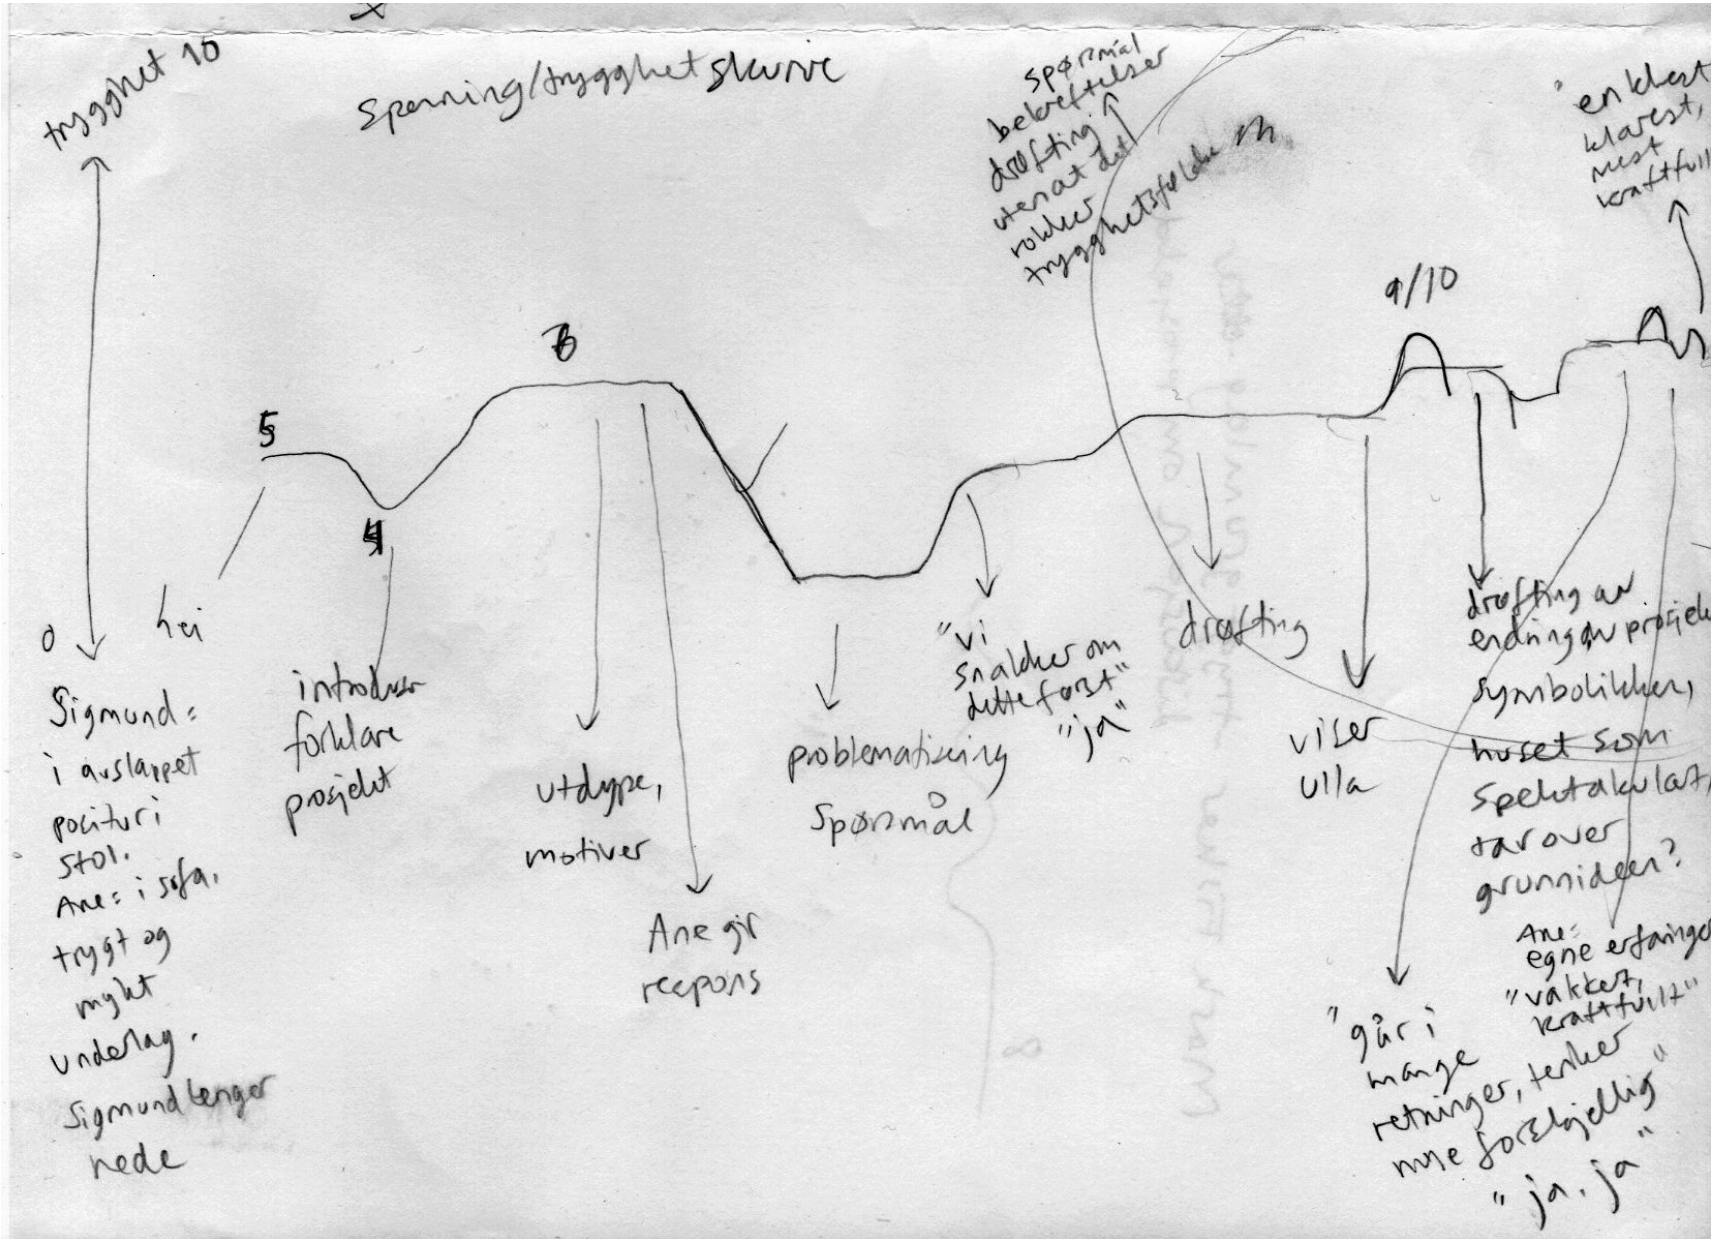 trygghet 10
Spenning/trygghetskurve
Spørsmål
bekreftelser
drøfting
uten at det
rokker
"enklest
klarest,
mest
kraftfull
9/10
5
4
0
hei
Sigmund =
i avslappet
positur i
stol.
Ane = i sofa,
trygt og
mykt
underlag.
Sigmund lenger
nede
introduser
forklare
prosjekt
utdype,
motiver
Ane gir
respons
problematisering
Spørsmål
"vi
snakker om
dette først"
"ja"
drøfting
viser
ulla
drøfting av
endring av prosjek
symbolikken,
huset som
spektakulært,
tar over
grunnideen?
Ane =
egne erfaringer
"vakkert,
kraftfullt"
"går i
mange
retninger, tenker
mye forskjellig"
"ja, ja"